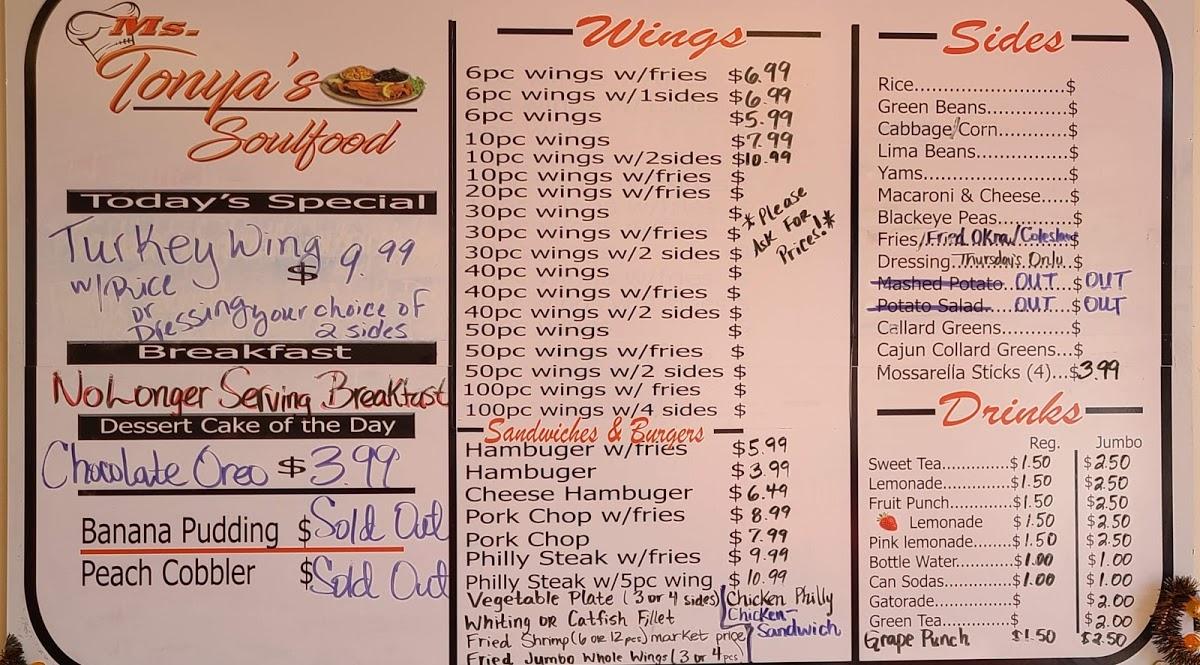 Ms.
Tonya's
Soulfood
Today's Special
Turkey Wing $ 9.99
w/Rice
or
Dressing your choice of
2 sides
Breakfast
No Longer Serving Breakfast
Dessert Cake of the Day
Chocolate Oreo $3.99
Banana Pudding $Sold Out
Peach Cobbler $Sold Out
Wings
6pc wings w/fries $6.99
6pc wings w/1sides $6.99
6pc wings $5.99
10pc wings $7.99
10pc wings w/2sides $10.99
10pc wings w/fries $
20pc wings w/fries $
30pc wings $
30pc wings w/fries $
30pc wings w/2 sides $
40pc wings $
40pc wings w/fries $
40pc wings w/2 sides $
50pc wings $
50pc wings w/fries $
50pc wings w/2 sides $
100pc wings w/ fries $
100pc wings w/4 sides $
*Please
Ask For
Prices!*
Sandwiches & Burgers
Hambuger w/fries $5.99
Hambuger $3.99
Cheese Hambuger $6.49
Pork Chop w/fries $8.99
Pork Chop $7.99
Philly Steak w/fries $9.99
Philly Steak w/5pc wing $10.99
Vegetable Plate (3 or 4 sides)
Whiting or Catfish Fillet
Fried Shrimp (6 or 12pcs) market price
Fried Jumbo Whole Wings (3 or 4pcs)
Chicken Philly
Chicken-
Sandwich
Sides
Rice..........................$
Green Beans..............$
Cabbage/Corn............$
Lima Beans................$
Yams.........................$
Macaroni & Cheese.....$
Blackeye Peas............$
Fries/Fried Okra/Coleslaw $
Dressing...Thursday's Only $
Mashed Potato..OUT...$ OUT
Potato Salad...OUT...$ OUT
Callard Greens............$
Cajun Collard Greens...$
Mossarella Sticks (4)...$3.99
Drinks
Reg. Jumbo
Sweet Tea............$1.50 $2.50
Lemonade............$1.50 $2.50
Fruit Punch..........$1.50 $2.50
Lemonade $1.50 $2.50
Pink lemonade.....$1.50 $2.50
Bottle Water.........$1.00 $1.00
Can Sodas...........$1.00 $1.00
Gatorade.............$ $2.00
Green Tea...........$ $2.00
Grape Punch $1.50 $2.50